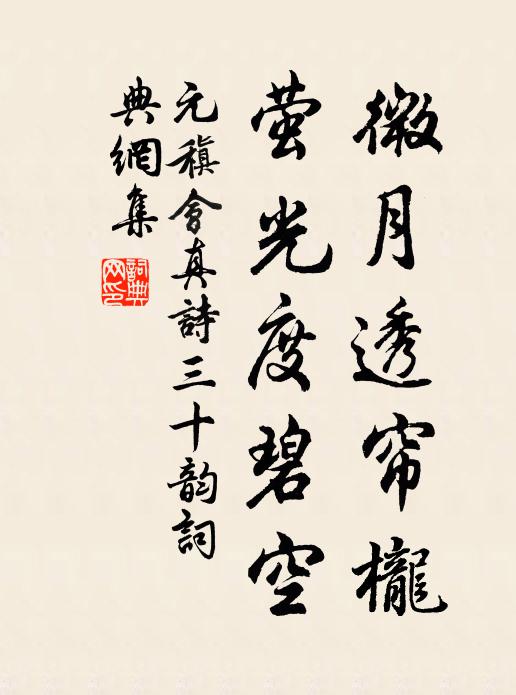 微月透帘櫳
萤光度碧空
元稹會真詩三十韵詞
典網集
詞典网印